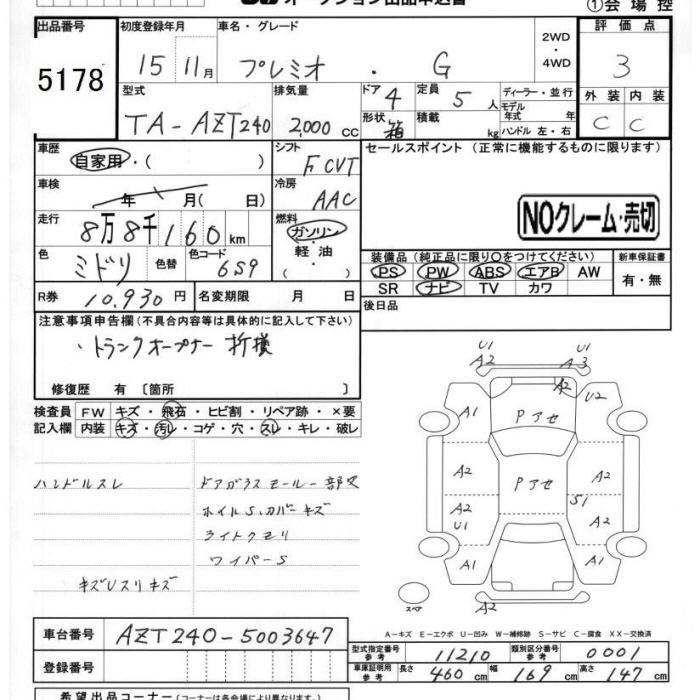 オークション出品申込書
①会場控
出品番号 初度登録年月 車名・グレード 2WD・4WD 評価点
5178 15 11月 プレミオ ・ G 3
型式 排気量 ドア 4 定員 5 人 ディーラー・並行 外装 内装
TA-AZT240 2,000 cc 形状 箱 積載 kg モデル年式 年 ハンドル 左・右 C C
車歴 自家用・( ) シフト F CVT セールスポイント (正常に機能するものに限ります)
車検 年 月( 日) 冷房 AAC
NOクレーム・売切
走行 8万8千160km 燃料 ガソリン・軽油・( )
色 ミドリ 色替 色コード 6S9
装備品 (純正品に限り○をつけてください) 新車保証書
PS PW ABS エアB AW 有・無
SR ナビ TV カワ
R券 10,930円 名変期限 月 日 後日品
注意事項申告欄 (不具合内容等は具体的に記入して下さい)
・トランクオープナー 折様
修復歴 有 〔箇所 〕
検査員 FW キズ・飛石・ヒビ割・リペア跡・×要
記入欄 内装 キズ・汚レ・コゲ・穴・スレ・キレ・破レ
ハンドルスレ ドアガラスモールー部欠
ホイルS、カバーキズ
ライトクモリ
ワイパーS
キズUスリキズ
U1 U1
A2 A3
A2 U2
A1 Pアセ
A2 Pアセ A2
A2 S1 A2
U1
A1 A1
スペア A2
A-キズ E-エクボ U-凹み W-補修跡 S-サビ C-腐食 XX-交換済
車台番号 AZT240-5003647
型式指定番号 参考 11210 類別区分番号 参考 0001
登録番号
車庫証明用 参考 長さ 460 cm 幅 169 cm 高さ 147 cm
希望出品コーナー (コーナーは各会場により異なります)